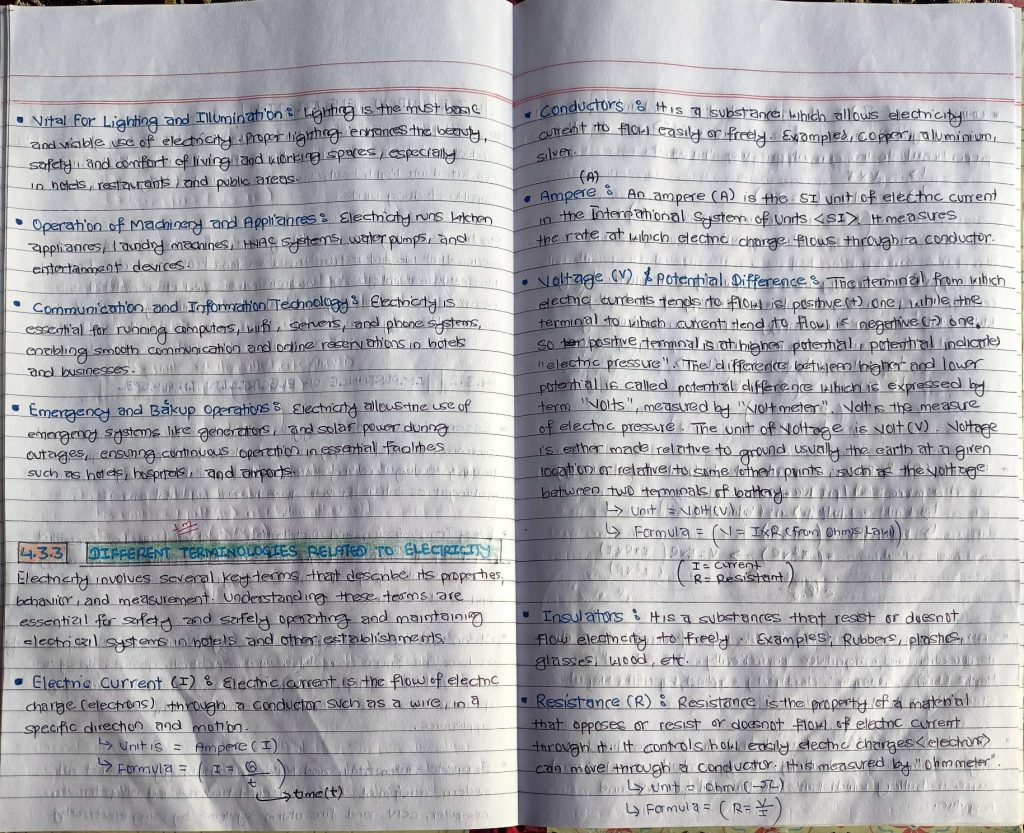 • Vital For Lighting and Illumination : Lighting is the must basic
and visible use of electricity. Proper lighting enhances the beauty,
safety and comfort of living and working spaces, especially
in hotels, restaurants, and public areas.
• Operation of Machinery and Appliances : Electricity runs kitchen
appliances, laundry machines, HVAC systems, water pumps, and
entertainment devices.
• Communication and Information Technology : Electricity is
essential for running computers, wifi, servers, and phone systems,
enabling smooth communication and online reservations in hotels
and businesses.
• Emergency and Bakup Operations : Electricity allows the use of
emergency systems like generators, and solar power during
outages, ensuring continuous operation in essential facilities
such as hotels, hospitals, and airports.
4.3.3 DIFFERENT TERMINOLOGIES RELATED TO ELECTRICITY
Electricity involves several key terms that describe its properties,
behavior, and measurement. Understanding these terms are
essential for safety and safely operating and maintaining
electrical systems in hotels and other establishments.
• Electric Current (I) : Electric current is the flow of electric
charge (electrons) through a conductor such as a wire, in a
specific direction and motion.
↳ Unit is = Ampere (I)
↳ Formula = (I = Q/t)
→ time(t)
• Conductors : It is a substance which allows electricity
current to flow easily or freely. Examples, copper, aluminium,
silver.
(A)
• Ampere : An ampere (A) is the SI unit of electric current
in the International System of Units <SI>. It measures
the rate at which electric charge flows through a conductor.
• Voltage (V) & Potential Difference : The terminal from which
electric currents tends to flow is positive (+) one, while the
terminal to which current tend to flow is negative (-) one,
so positive terminal is at higher potential, potential indicate
"electric pressure". The difference between higher and lower
potential is called potential difference which is expressed by
term "Volts", measured by "Voltmeter". Volt is the measure
of electric pressure. The unit of Voltage is volt (V). Voltage
is either made relative to ground usually the earth at a given
location or relative to some other points, such as the voltage
between two terminals of battery.
↳ Unit = Volt (V)
↳ Formula = (V = I×R (from Ohms Law))
(I = Current
R = Resistant)
• Insulators : It is a substances that resist or doesnot
flow electricity to freely. Examples, Rubbers, plastics,
glasses, wood, etc.
• Resistance (R) : Resistance is the property of a material
that opposes or resist or doesnot flow of electric current
through it. It controls how easily electric charges <electrons>
can move through a conductor. It is measured by "ohmmeter".
↳ Unit = Ohm (Ω)
↳ Formula = (R = V/I)